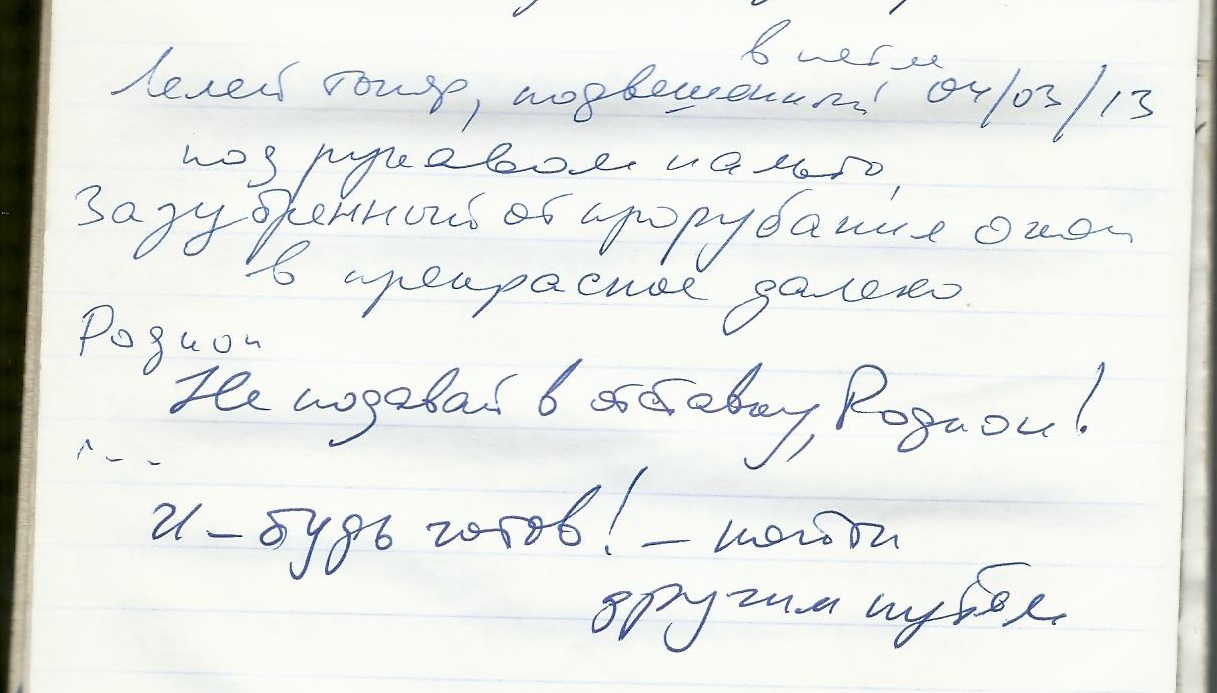 в петле
Лелей топор, подвешенный 04/03/13
под рукавом пальто,
Зазубренный от прорубания окон
в прекрасное далеко
Родион
Не подавай в отставку, Родион!
...
И – будь готов! – пойти
другим путём